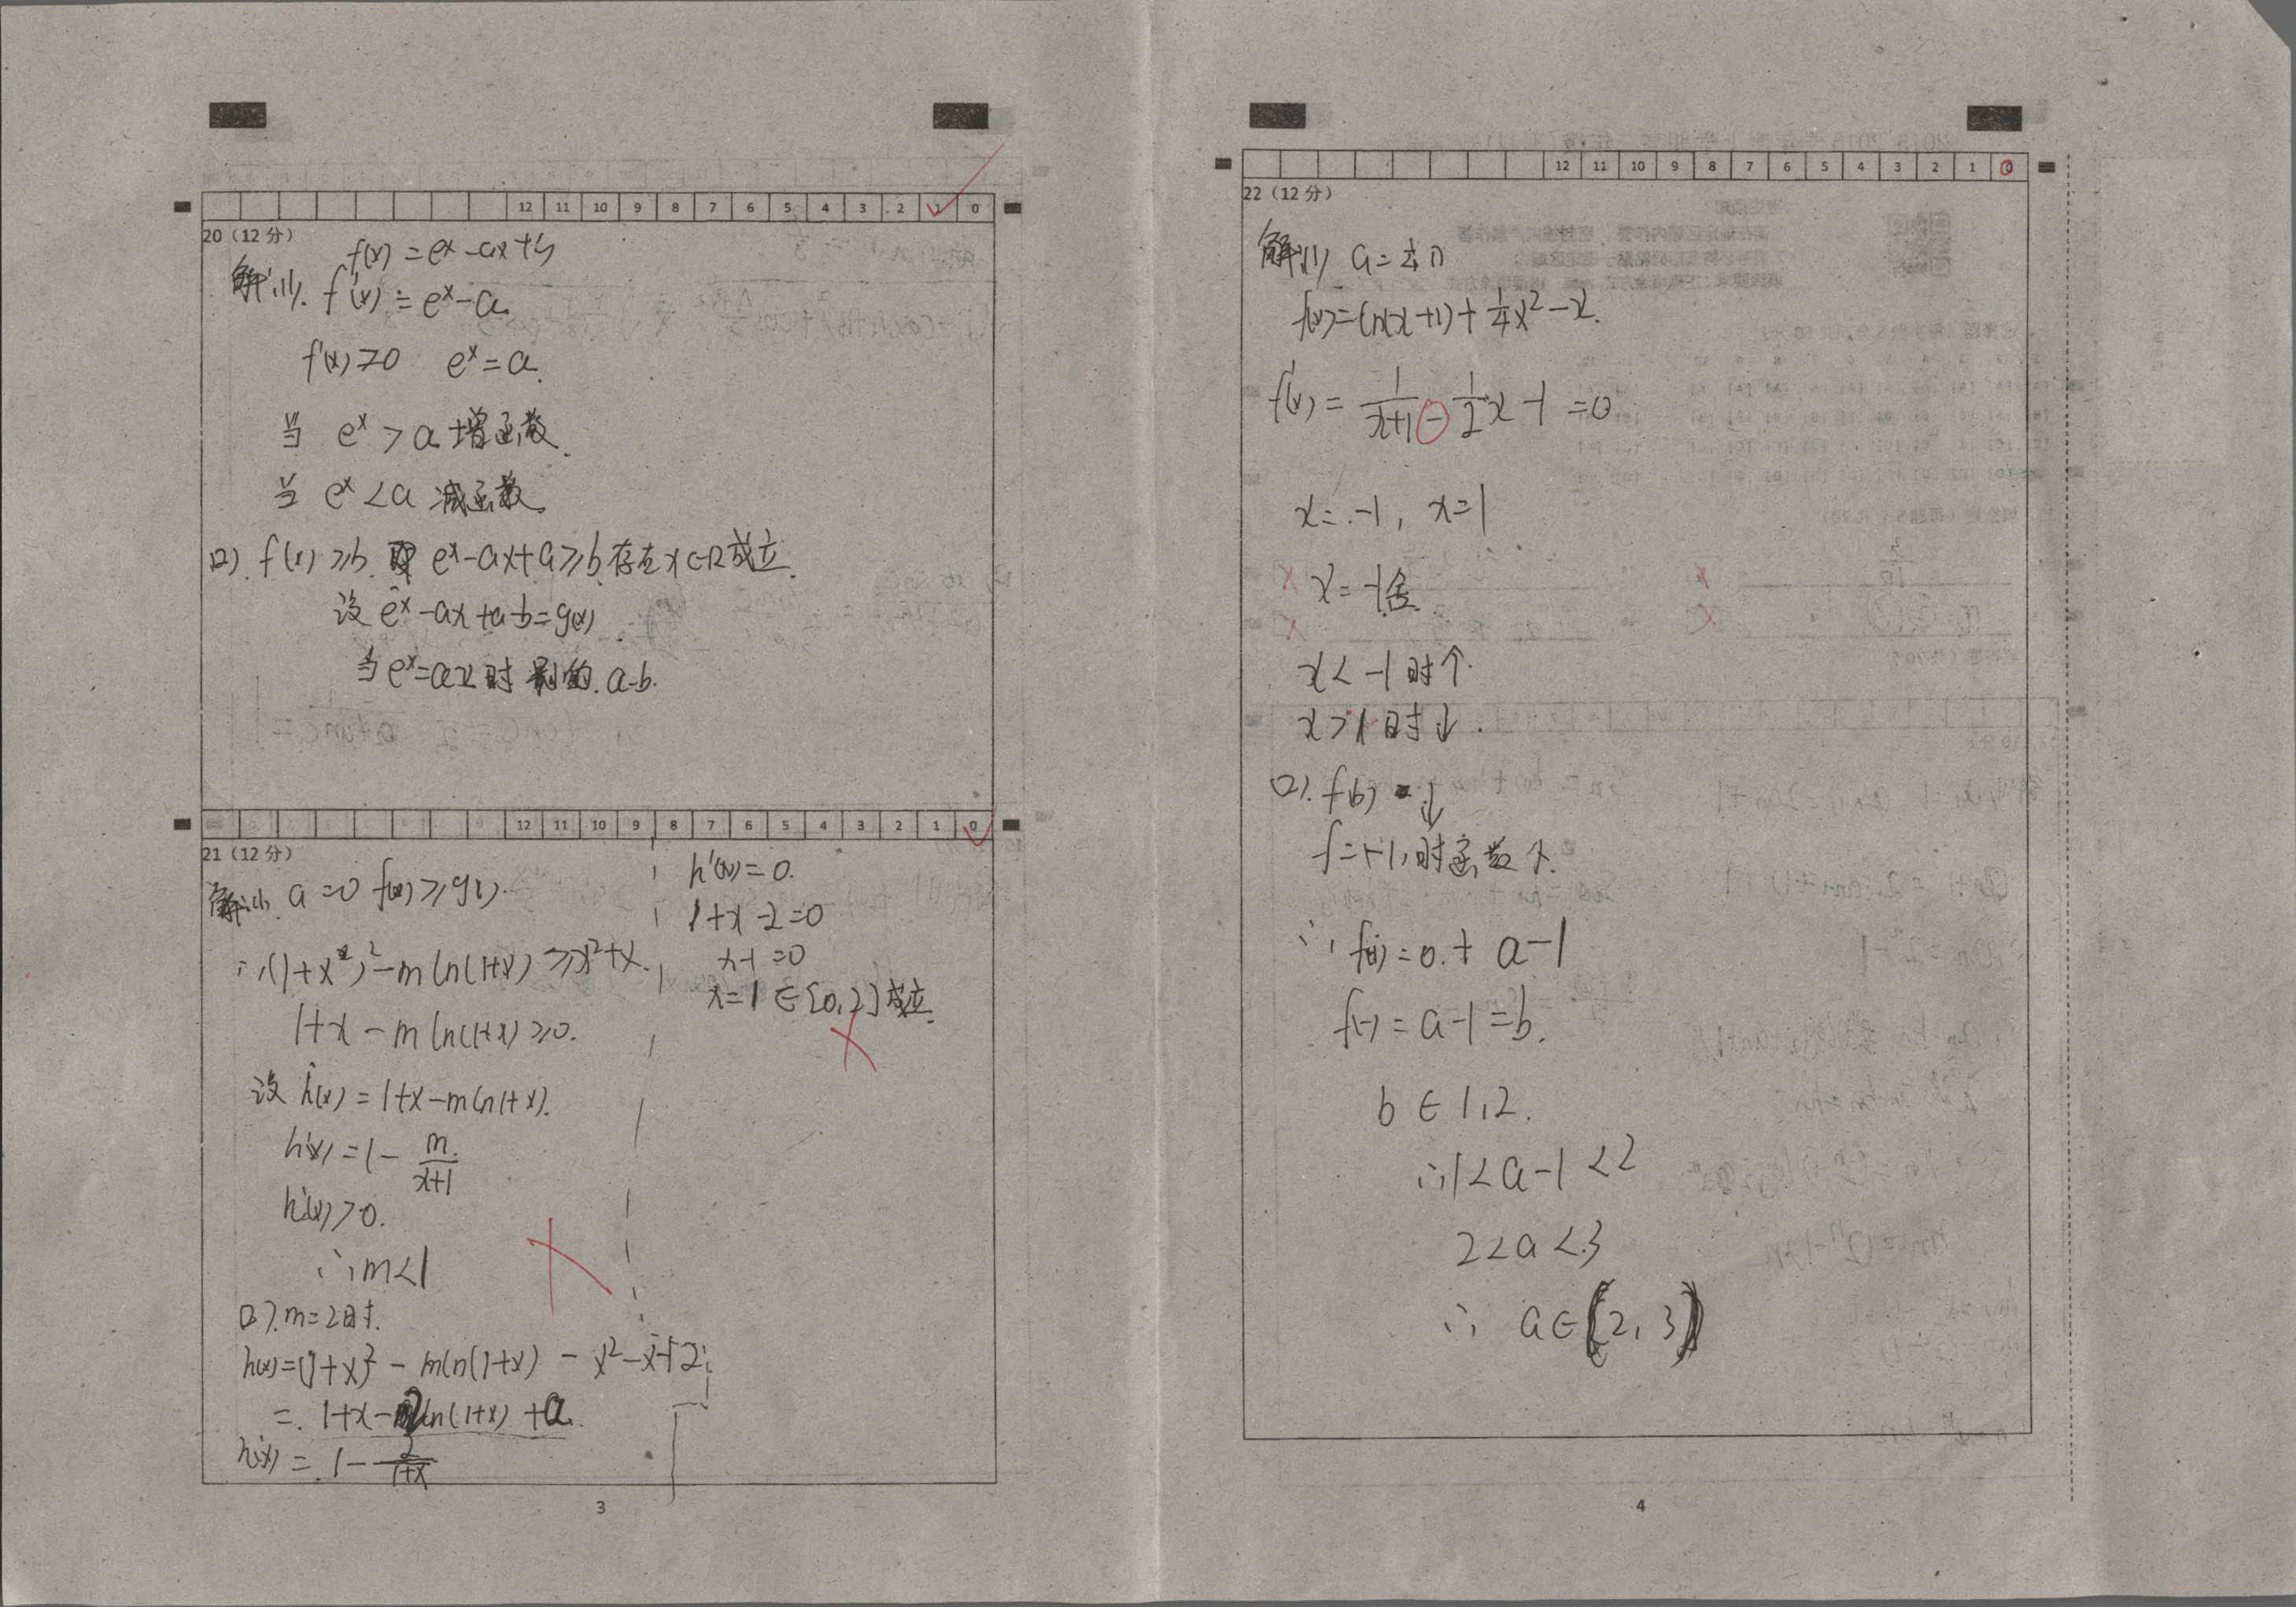 12 11 10 9 8 7 6 5 4 3 2 1 0
20（12分）
f(x) = e^x - ax + b
解:(1). f'(x) = e^x - a.
f'(x) ≥ 0 e^x = a.
当 e^x > a 增函数.
当 e^x < a 减函数.
(2). f(x) ≥ b. 即 e^x - ax + a ≥ b 存在 x∈R 成立.
设 e^x - ax + a - b = g(x)
当 e^x = ax 时 a - b.
12 11 10 9 8 7 6 5 4 3 2 1 0
21（12分）
解:(1). a = 0 f(x) ≥ g(x).
∴ (1+x)^2 - m ln(1+x) ≥ x^2 + x.
1 + x - m ln(1+x) ≥ 0.
设 h(x) = 1 + x - m ln(1+x).
h'(x) = 1 - m/(x+1)
h'(x) > 0.
∴ m < 1
(2). m = 2时.
h(x) = (1+x)^2 - m ln(1+x) - x^2 - x + a
= 1 + x - 2 ln(1+x) + a.
h'(x) = 1 - 2/(1+x)
h'(x) = 0.
1 + x - 2 = 0
x - 1 = 0
x = 1 ∈ [0, 2] 成立.
3
12 11 10 9 8 7 6 5 4 3 2 1 0
22（12分）
解:(1) a = 1/4 时
f(x) = ln(x+1) + 1/4 x^2 - x.
f'(x) = 1/(x+1) - 1/2 x - 1 = 0
x = -1, x = 1
x = -1 舍.
x < -1 时 ↑.
x > 1 时 ↓.
(2). f(b) ↓
f = -1, 时函数 ↑.
∴ f(1) = 0 + a - 1
f(-1) = a - 1 = b.
b ∈ 1, 2.
∴ 1 < a - 1 < 2
2 < a < 3
∴ a ∈ (2, 3)
4